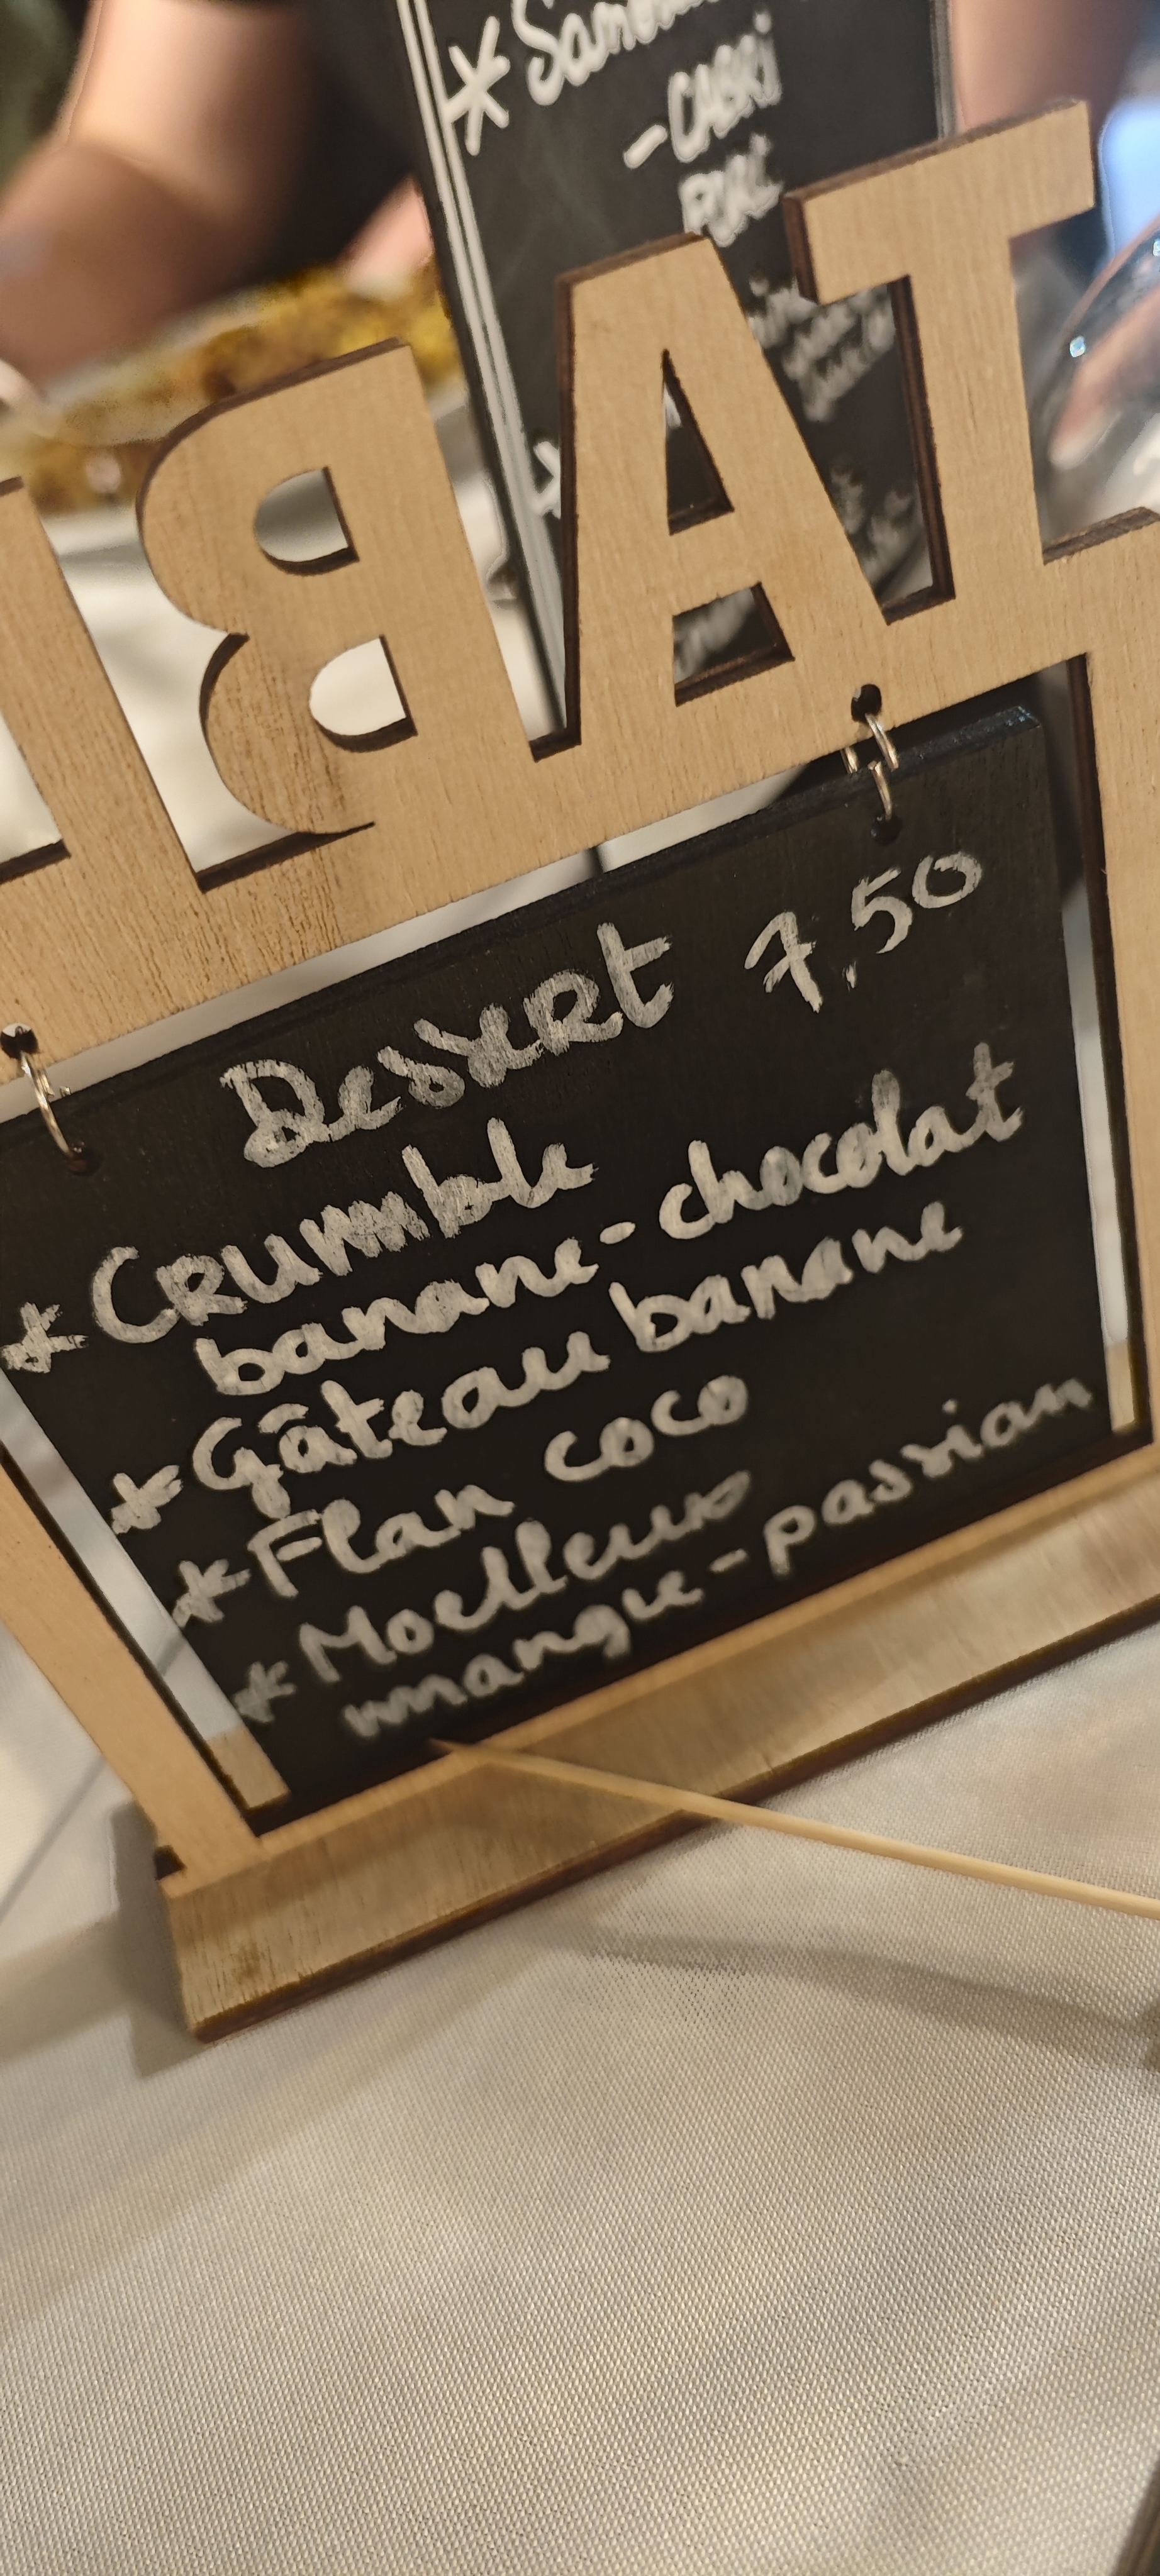 - CABRI
TAB
Dessert 7,50
* Crumble
banane-chocolat
* Gâteau banane
* Flan coco
* Moelleux
mangue-passion